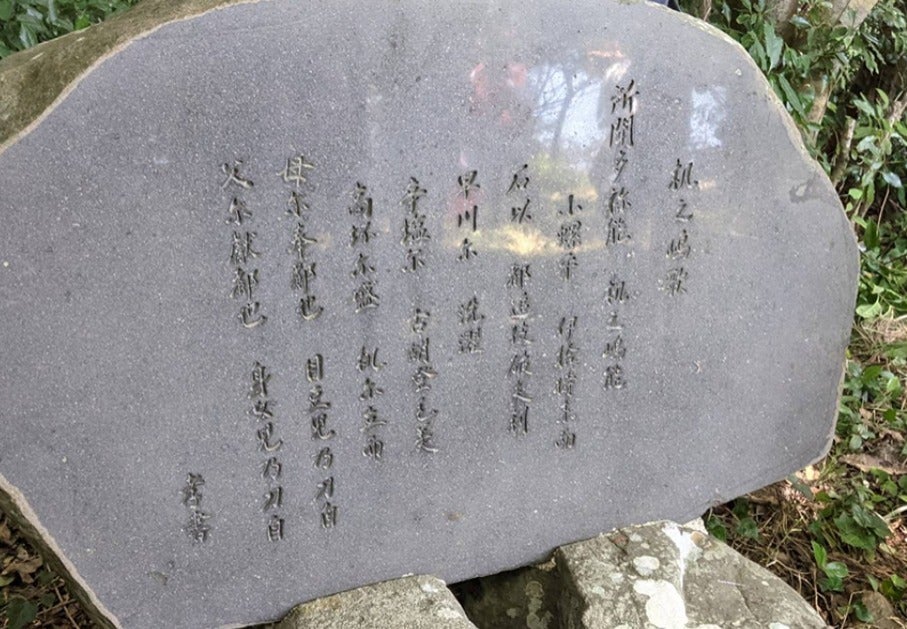 机之嶋歌
所聞多祢能 机之嶋能
小螺乎 伊拾持来而
石以 都追伎破夫利
早川尓 洗濯
辛塩尓 古胡登毛美
高坏尓盛 机尓立而
母尓奉都也 目豆兒乃刀自
父尓獻都也 身女兒乃刀自
書